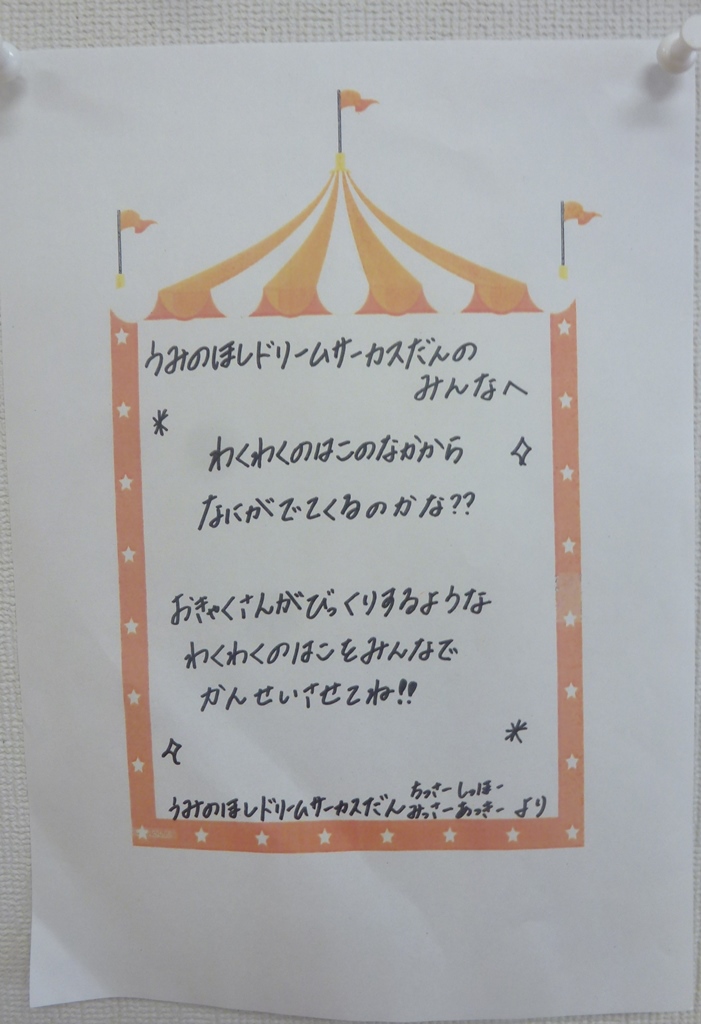 うみのほしドリームサーカスだんの
みんなへ
わくわくのはこのなかから
なにがでてくるのかな??
おきゃくさんがびっくりするような
わくわくのはこをみんなで
かんせいさせてね!!
ちっさーしっほー
うみのほしドリームサーカスだん みっさーあっきー より